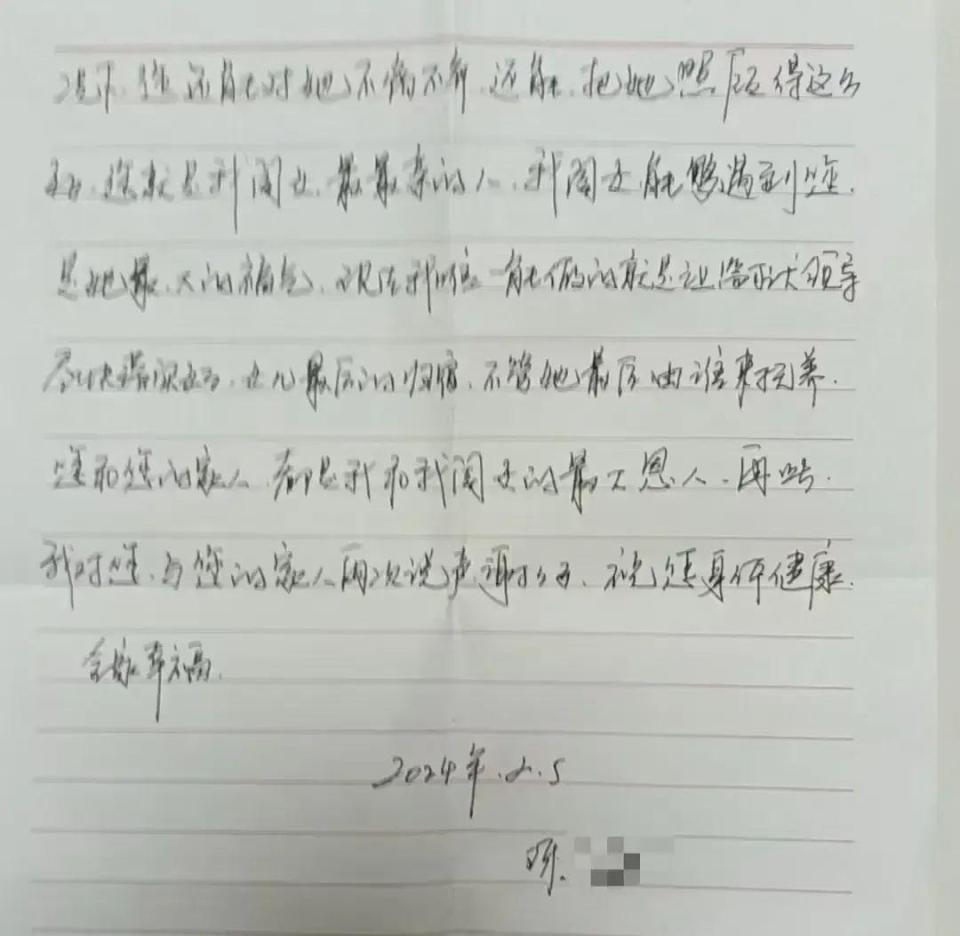 况下,您还能对她不离不弃,还能把她照顾得这么
好,您就是我闺女最最亲的人,我闺女能够遇到您,
是她最大的福气,现在我唯一能做的就是让 领导
尽快 女儿最后的归宿,不管她最后由谁来抚养,
您和您的家人,都是我和我闺女的最大恩人,再此,
我对您,与您的家人再次说声谢谢 祝您身体健康,
全家幸福,
2024年.2.5
陈